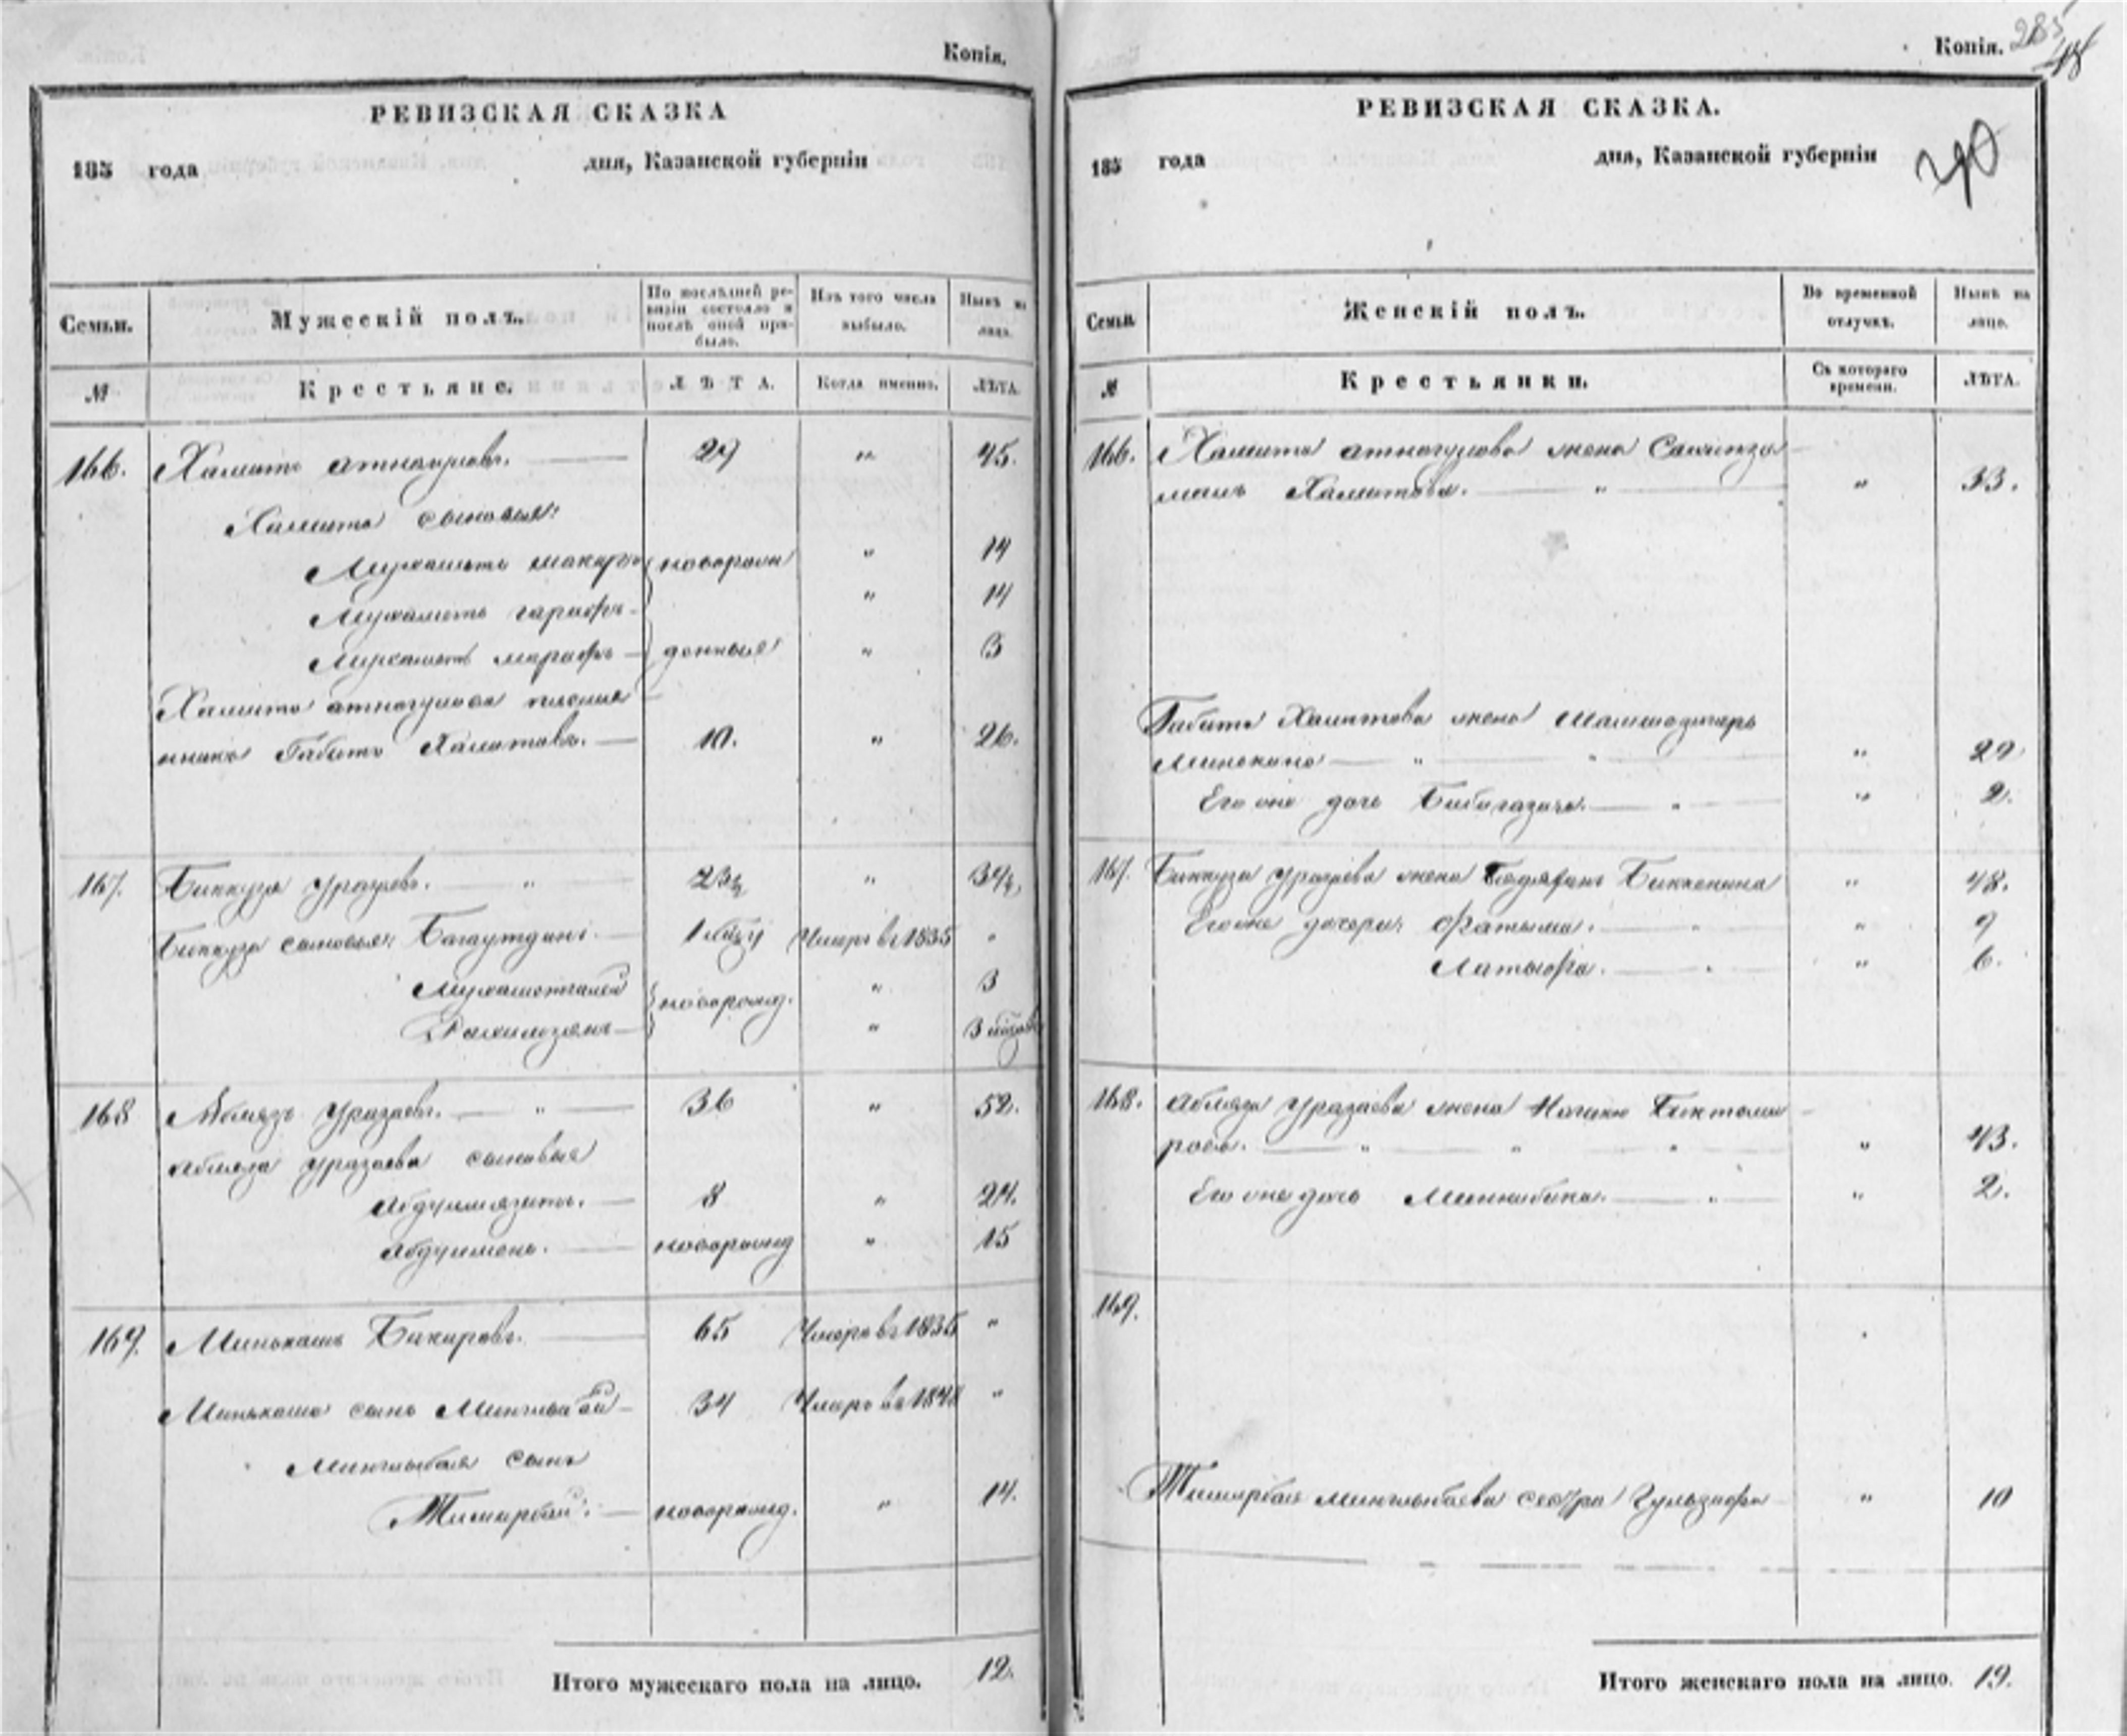 Копія.
РЕВИЗСКАЯ СКАЗКА
185 года дня, Казанской губерніи
Семьи. Мужескій полъ. По послѣдней ревизіи состояло и послѣ оной прибыло. Изъ того числа выбыло. Нынѣ на лицо.
№ Крестьяне. ЛѢТА. Когда именно. ЛѢТА.
166. Хамитъ 29 " 45.
Хамита сыновья:
Мухаметъ новорож " 14
Мухаметъ гарифъ " 14
Мухаметъ денные " 3
Хамита атнагулова племян
никъ Габитъ Хамитовъ. 10. " 26.
167. Биккузя Уразаевъ. " 23½ " 39½
Биккузи сыновья: Багаутдинъ. Умеръ въ 1835 "
Мухаметгалей новорожд. " 3
"
168 Аблязъ Уразаевъ. " 36 " 52.
Абляза Уразаева сыновья
8 " 24.
новорожд " 15
169. Бикировъ. 65 Умеръ въ 1835 "
сынъ 34 Умеръ въ "
сынъ
Тимирбай: новорожд. " 14.
Итого мужескаго пола на лицо. 12.
Копія.
285
48
РЕВИЗСКАЯ СКАЗКА.
290
185 года дня, Казанской губерніи
Семьи. Женскій полъ. Во временной отлучкѣ. Нынѣ на лицо.
№ Крестьянки. Съ котораго времени. ЛѢТА.
166. Хамита атнагулова жена
Хамитова. " " 33.
Габита Хамитова жена
" " " 29
Его же дочь " " 2.
167. Биккузи Уразаева жена " 48.
Его же дочери: Фатыма. " " 9
Латыфа. " " 6.
168. Абляза Уразаева жена Биктими
рова. " " " " 43.
Его же дочь Миннибика. " " 2.
169.
Тимирбая сестра Гульзифа " 10
Итого женскаго пола на лицо. 19.